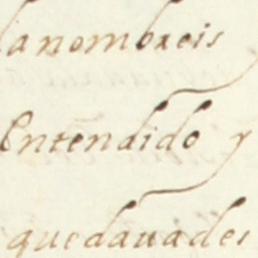 la nombreis
Entendido y
quedauades